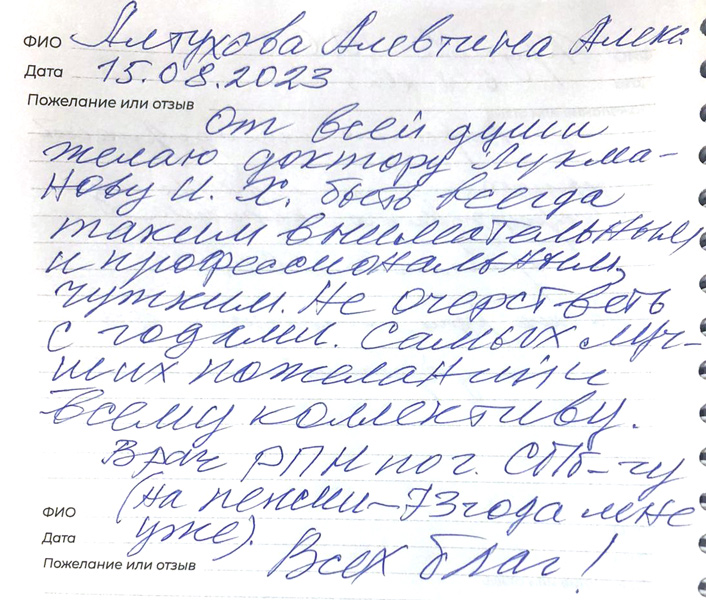 ФИО Алтухова Алевтина Алекс
Дата 15.08.2023
Пожелание или отзыв
От всей души
желаю доктору Лукма-
нову И. Х. быть всегда
таким внимательным
и профессиональным,
чутким. Не очерстветь
с годами. Самых луч-
ших пожеланий и
всему коллективу.
Врач РПН по г. СПб-гу
(на пенсии - 73 года мне
ФИО
уже).
Дата
Всех благ!
Пожелание или отзыв